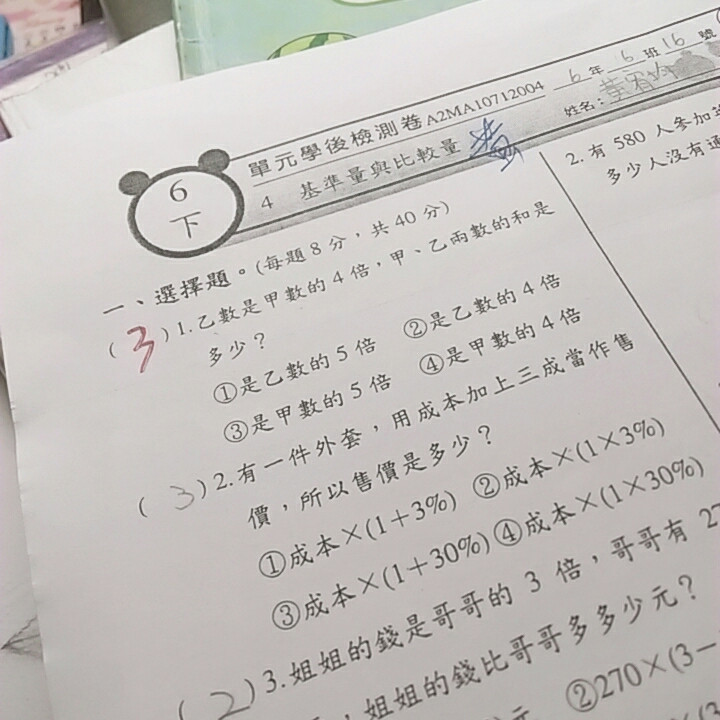 單元學後檢測卷 A2MA10712004 6年6班16號
姓名：
4 基準量與比較量
6
下
一、選擇題。(每題8分，共40分)
(3)1.乙數是甲數的4倍，甲、乙兩數的和是
多少？
①是乙數的5倍 ②是乙數的4倍
③是甲數的5倍 ④是甲數的4倍
(3)2.有一件外套，用成本加上三成當作售
價，所以售價是多少？
①成本×(1+3%) ②成本×(1×3%)
③成本×(1+30%) ④成本×(1×30%)
(2)3.姐姐的錢是哥哥的 3 倍，哥哥有 27
，姐姐的錢比哥哥多多少元？
元 ②270×(3−
2.有 580 人參加
多少人沒有通